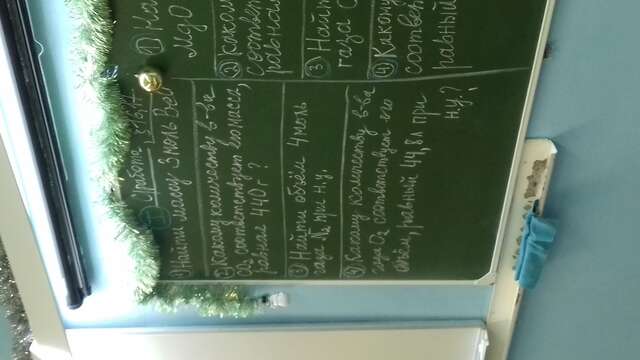 I С/работа
① Найти массу 3 моль BeO
② Какому количеству в-ва
CO₂ соответствует его масса,
равная 440 г ?
③ Найти объём 4 моль
газа N₂ при н.у.
④ Какому количеству в-ва
газа O₂ соответствует его
объём, равный 44,8 л при
н.у.?
① На
MgO
② Каком
соответ
равная
③ Найт
газа
④ Какому
соответ
равный